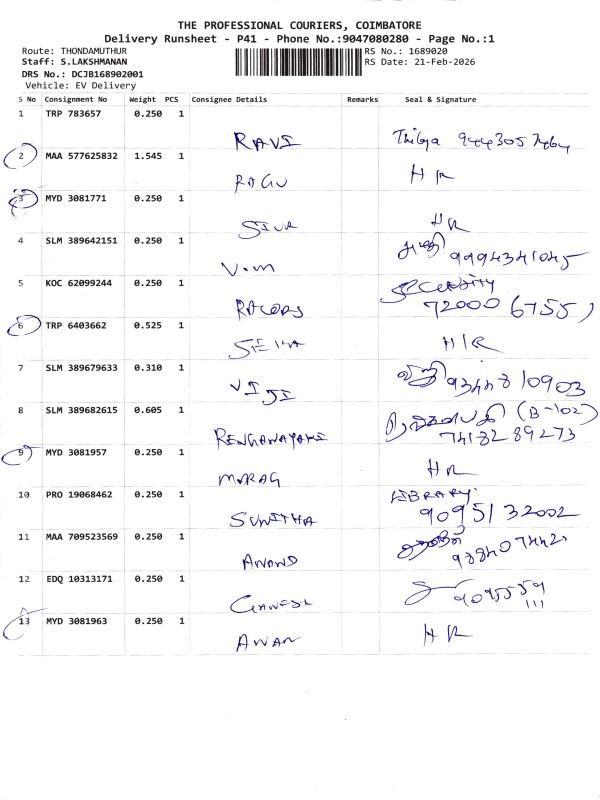 THE PROFESSIONAL COURIERS, COIMBATORE
Delivery Runsheet - P41 - Phone No.:9047080280 - Page No.:1
Route: THONDAMUTHUR RS No.: 1689020
Staff: S.LAKSHMANAN RS Date: 21-Feb-2026
DRS No.: DCJB168902001
Vehicle: EV Delivery
S No Consignment No Weight PCS Consignee Details Remarks Seal & Signature
1 TRP 783657 0.250 1
RAVI
2 MAA 577625832 1.545 1
RAGU HR
3 MYD 3081771 0.250 1
HR
4 SLM 389642151 0.250 1
9994341045
5 KOC 62099244 0.250 1
72000 6755
6 TRP 6403662 0.525 1
H/R
7 SLM 389679633 0.310 1
VIJI
8 SLM 389682615 0.605 1
(B-102)
RENGANAYAKI 74182 89273
9 MYD 3081957 0.250 1
HR
10 PRO 19068462 0.250 1 LIBRARY
SUNITHA 90951 32002
11 MAA 709523569 0.250 1
ANAND
12 EDQ 10313171 0.250 1
GANESH
13 MYD 3081963 0.250 1
HR